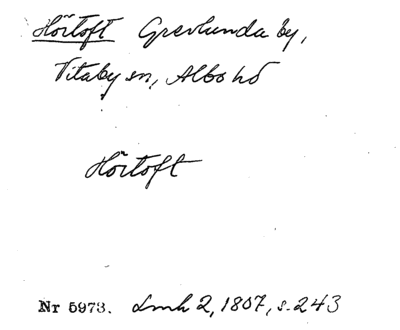 Hörtoft Grevlunda by,
Vitaby sn, Albo hd
Hörtoft
Nr 5973. Lmh 2, 1807, s. 243